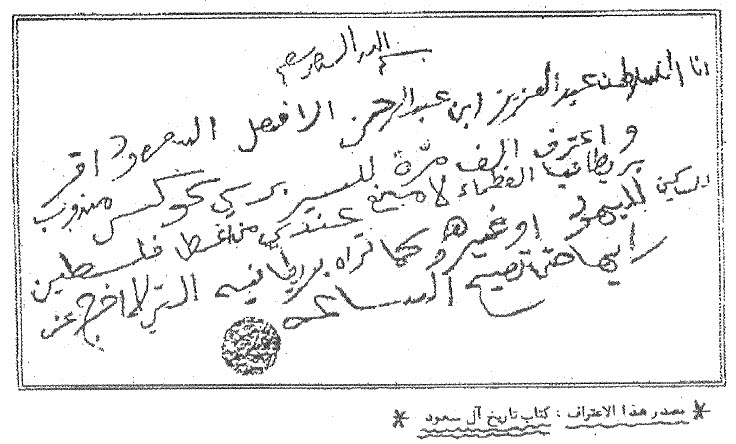 بسم الله الرحمن الرحيم
انا السلطان عبد العزيز ابن عبد الرحمن الافيصل السعود اقر
و اعترف الف مرّة للسير برسي كوكس مندوب
بريطانيا العظماء لا مانع عندي من اعطا فلسطين
للمساكين لليهود او غيرهم وكما تراه بريطانيه التي لا اخرج عن
رايها حتى تصيح الساعه
* مصدر هذا الاعتراف : كتاب تاريخ آل سعود *